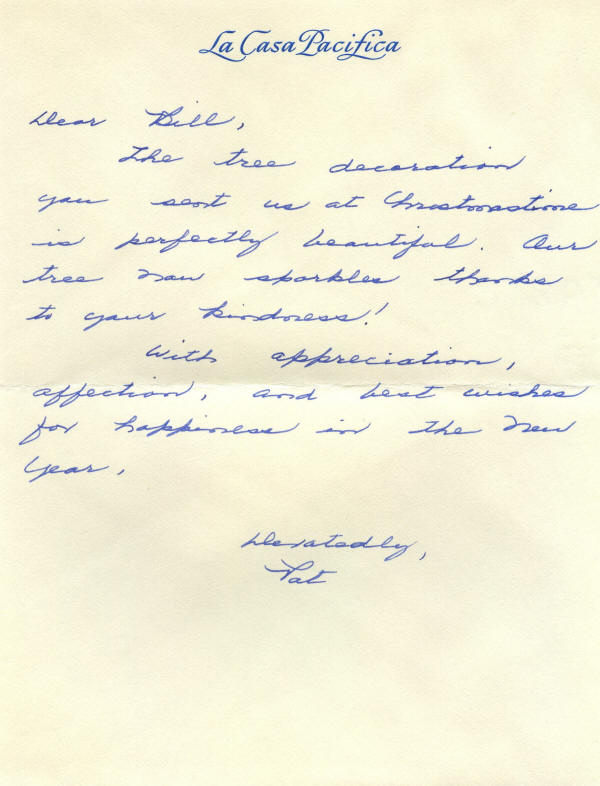 La Casa Pacifica
Dear Bill,
The tree decoration
you sent us at Christmastime
is perfectly beautiful. Our
tree now sparkles thanks
to your kindness!
With appreciation,
affection, and best wishes
for happiness in the New
Year,
Devotedly,
Pat